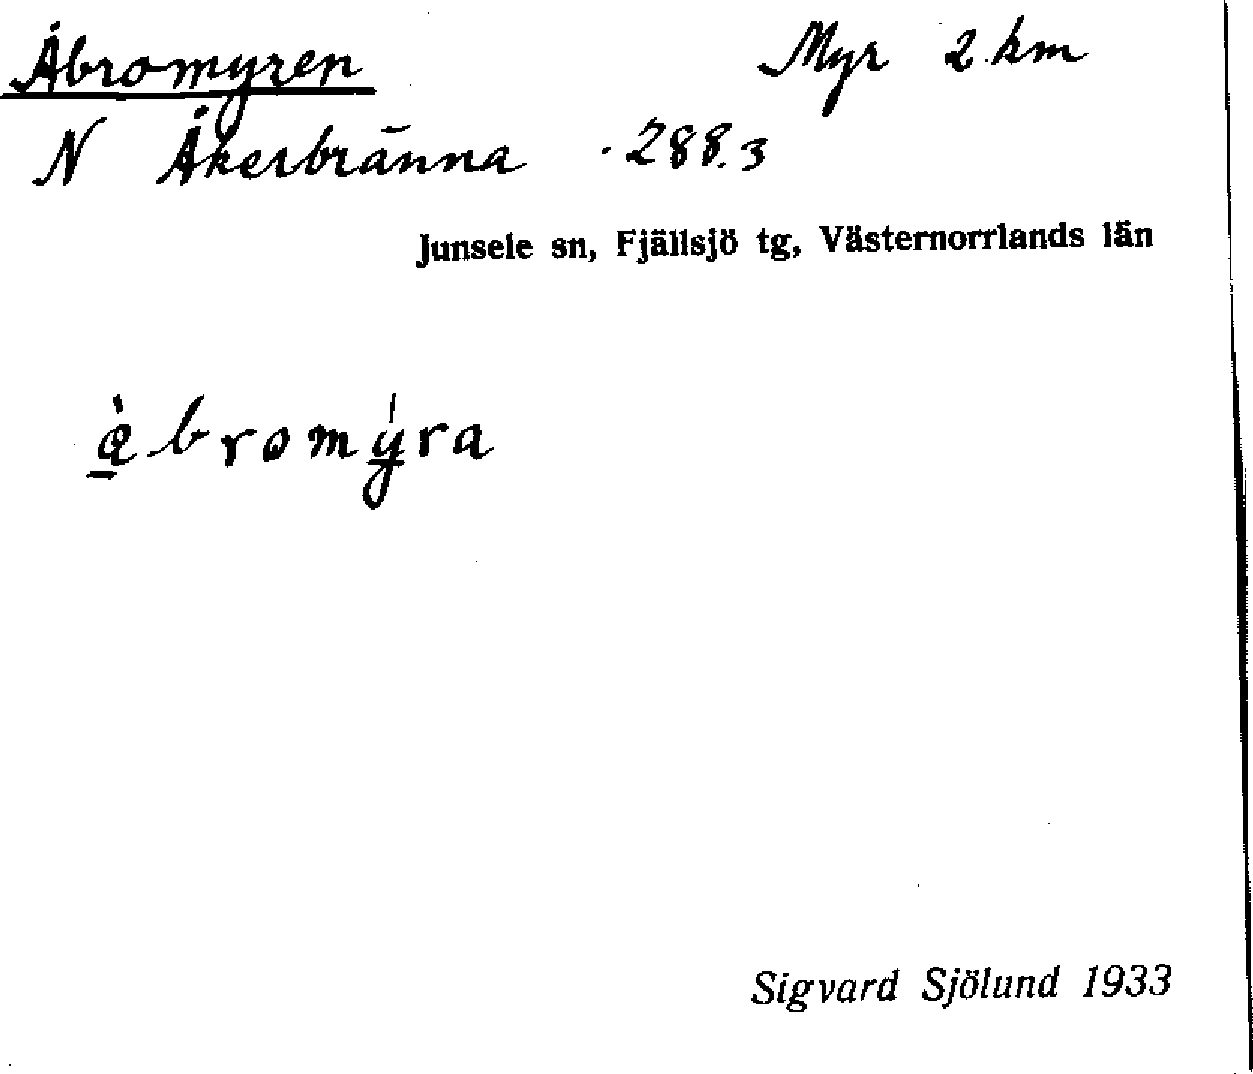 Åbromyren Myr 2 km
N Åkerbränna · 288.3
Junsele sn, Fjällsjö tg, Västernorrlands län
åbromyra
Sigvard Sjölund 1933